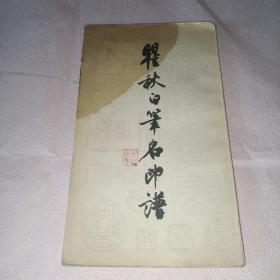 瞿秋白笔名印谱